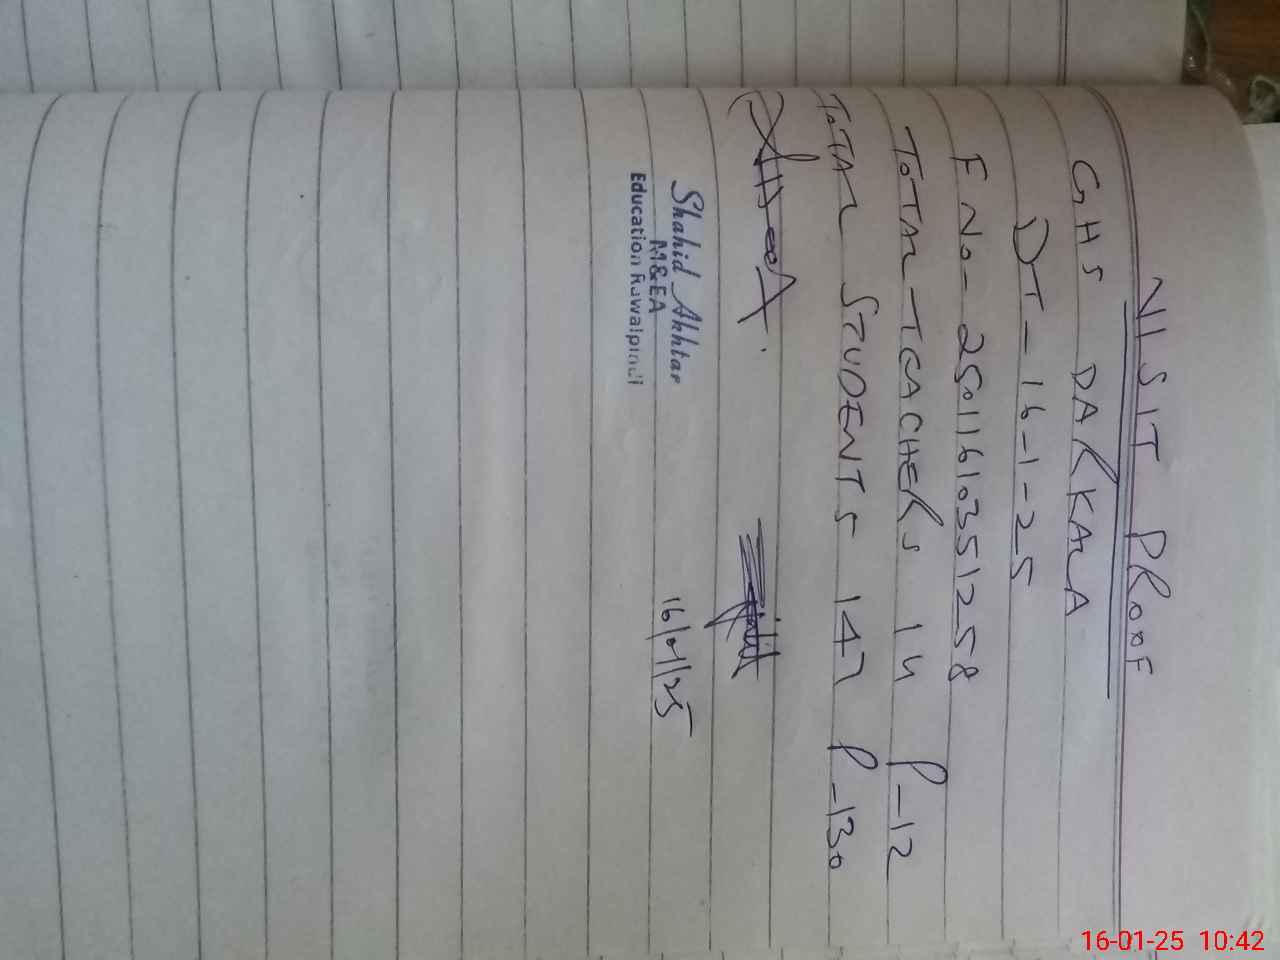 VISIT PROOF
GHS DARKALA
DT-16-1-25
F No- 25011610351258
TOTAL TEACHERS 14 P-12
TOTAL STUDENTS 147 P-130
Shahid Akhtar
M&EA
Education Rawalpindi
16/01/25
16-01-25 10:42